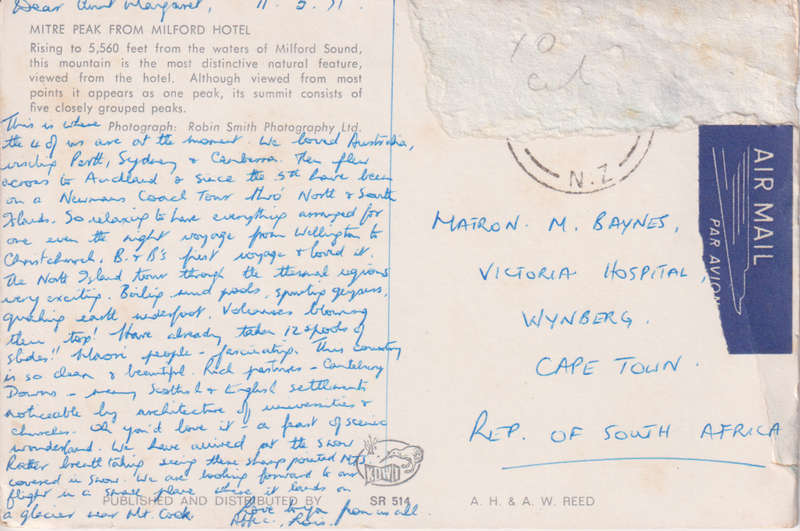 Dear Aunt Margaret, 11.5.71.
MITRE PEAK FROM MILFORD HOTEL
Rising to 5,560 feet from the waters of Milford Sound,
this mountain is the most distinctive natural feature,
viewed from the hotel. Although viewed from most
points it appears as one peak, its summit consists of
five closely grouped peaks.
Photograph: Robin Smith Photography Ltd.
This is where
the 4 of us are at the moment. We loved Australia,
visiting Perth, Sydney & Canberra. Then flew
across to Auckland & since the 5th have been
on a Newmans Coach Tour thro' North & South
Islands. So relaxing to have everything arranged for
one even the night voyage from Wellington to
Christchurch, B. & B's first voyage & loved it.
The North Island tour through the thermal regions
very exciting. Boiling mud pools, spouting geysers,
quaking earth underfoot. Volcanoes blowing
their top! Have already taken 12 spools of
slides!! Maori people - fascinating. This country
is so clean & beautiful. Rich pastures - Canterbury
Downs - many Scottish & English settlements
noticeable by architecture of universities &
churches. Oh you'd love it - a feast of scenic
wonderland. We have arrived at the snow
Rather breathtaking seeing these sharp pointed Mts
covered in snow. We are looking forward to our
flight in a small plane where it lands on
a glacier near Mt. Cook.
Love to you from us all
PUBLISHED AND DISTRIBUTED BY
KIWI
SR 514
A. H. & A. W. REED
N.Z
AIR MAIL
PAR AVION
MATRON. M. BAYNES,
VICTORIA HOSPITAL,
WYNBERG.
CAPE TOWN.
REP. OF SOUTH AFRICA